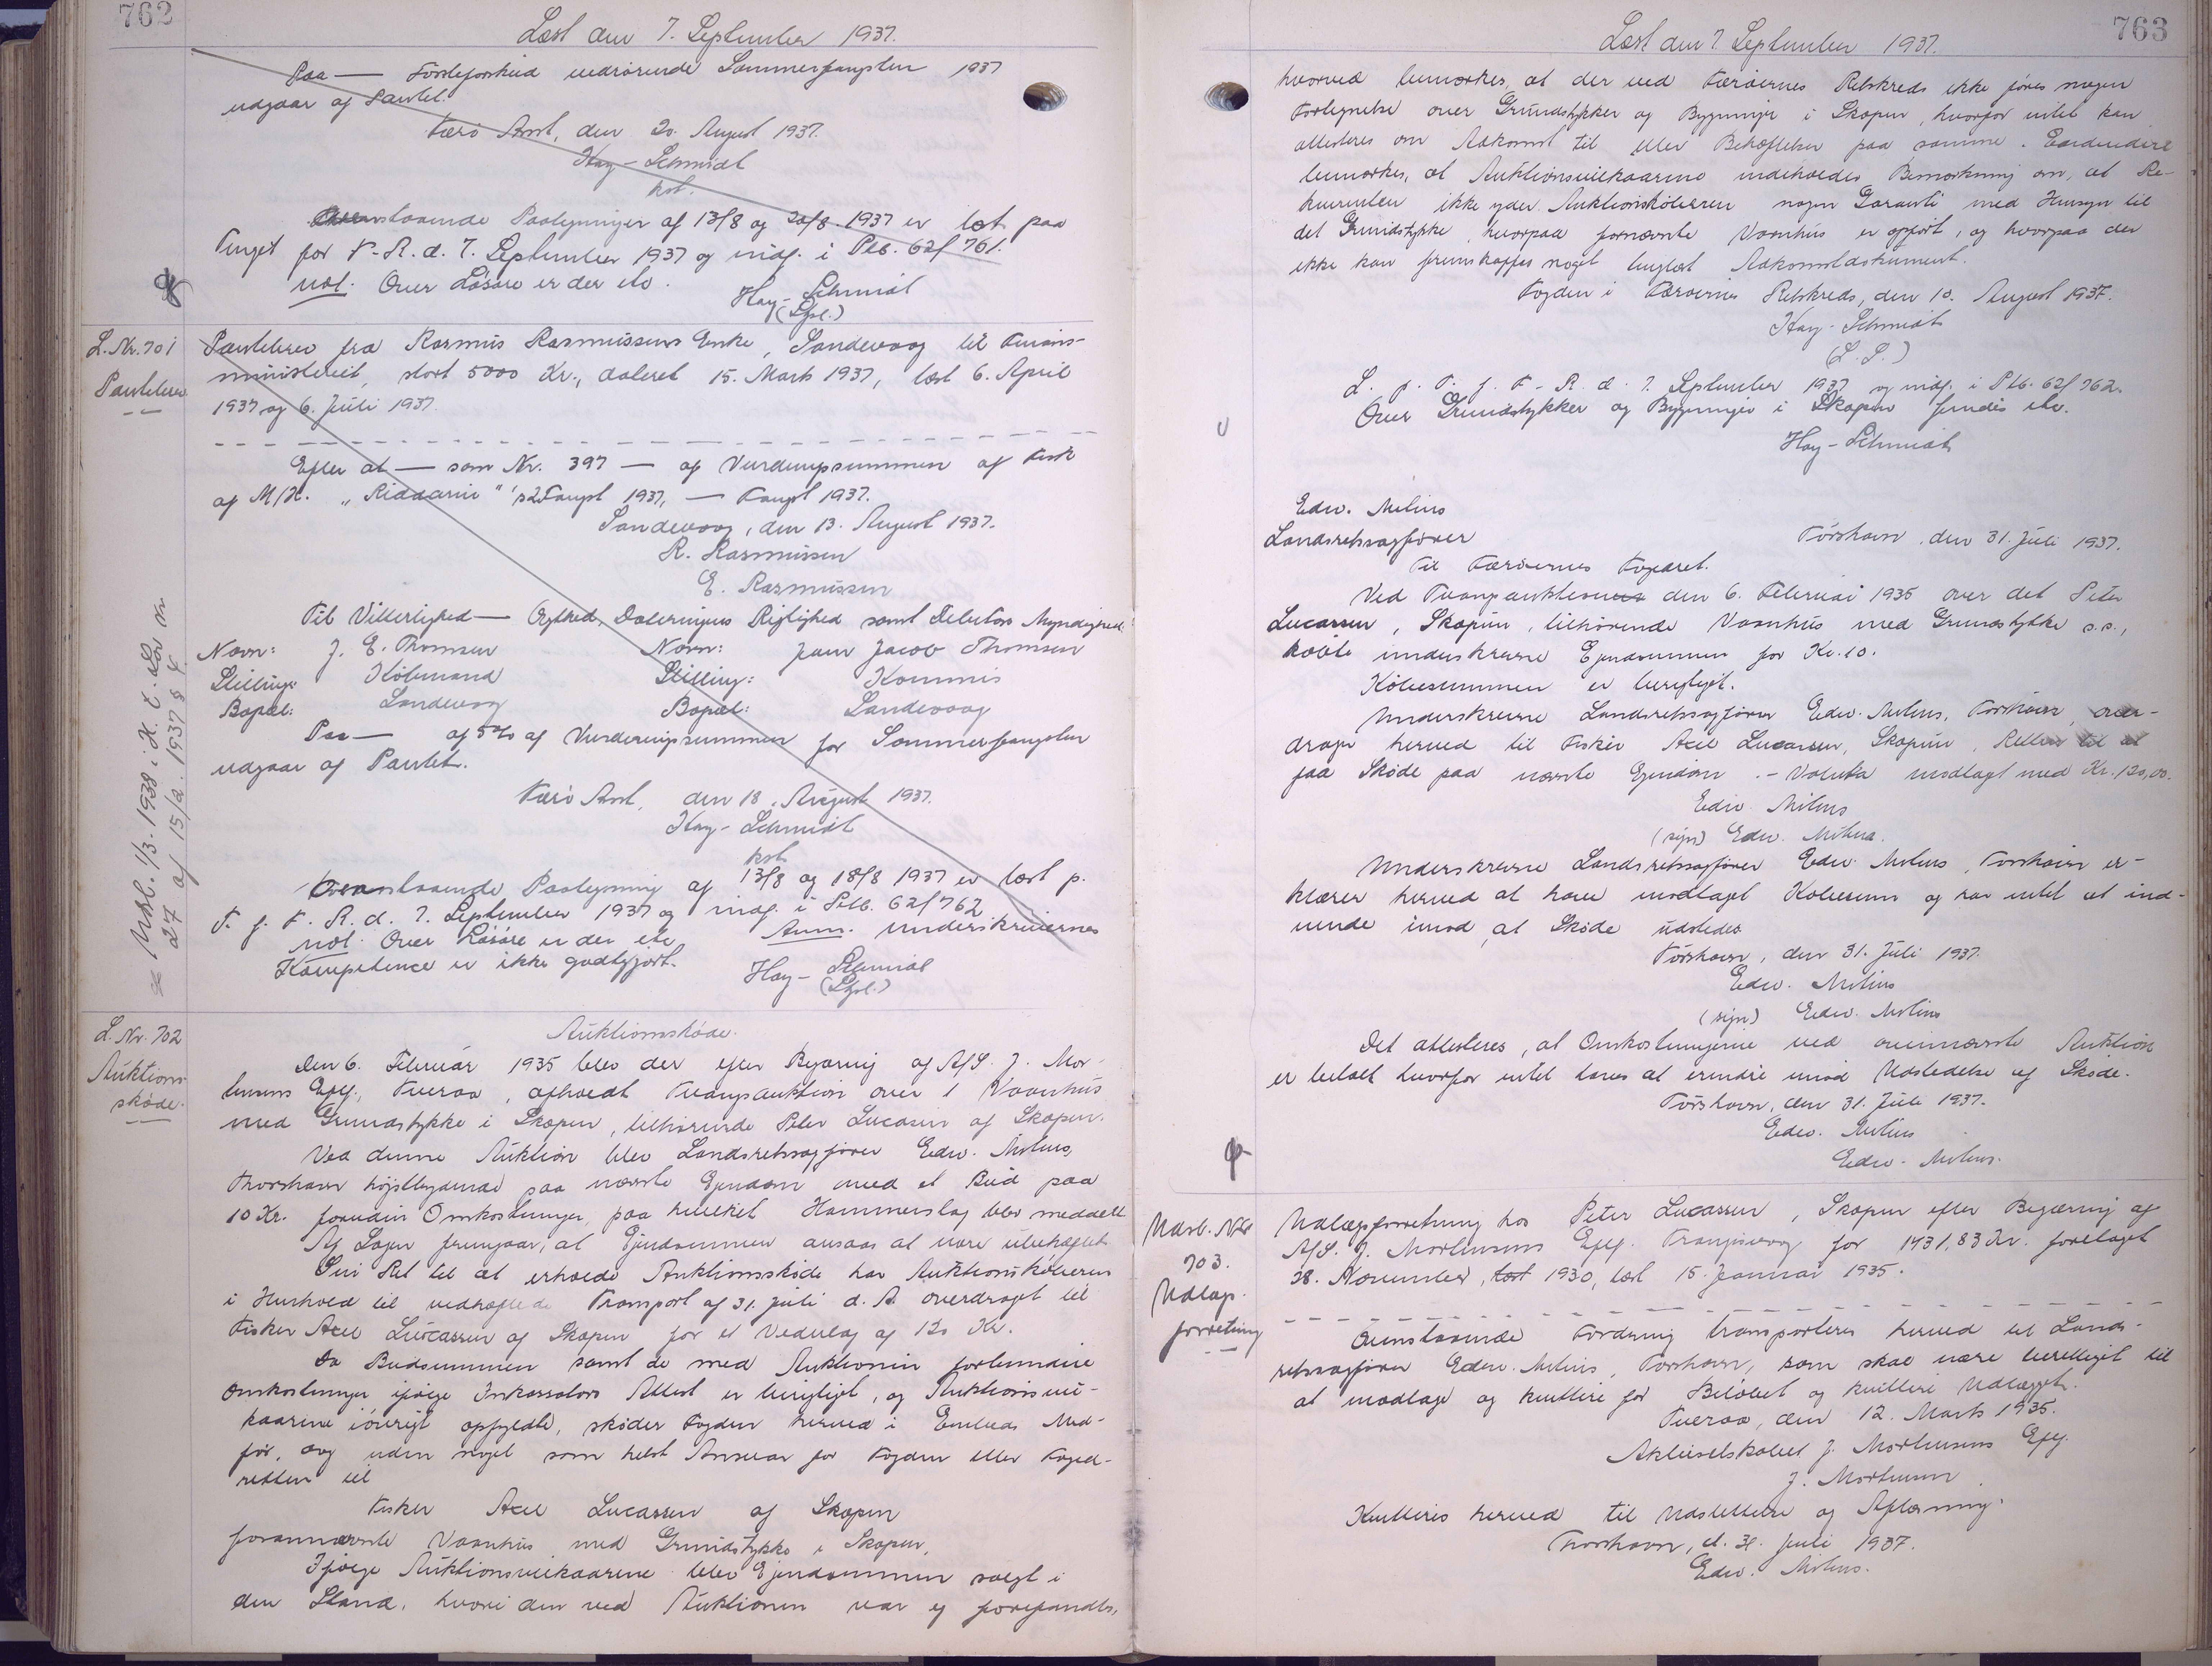 762
Læst den 7. September 1937.
Paa — Förstforskud vedrörende Sommerfangsten 1937
udgaar af Pantet.
Færö Amt, den 20. August 1937.
Hay-Schmidt
kst.
Ovenstaaende Paategninger af 13/8 og 20/8 1937 er læst paa
Tinget for F.-R. d. 7. September 1937 og indf. i Ptb. 62/761.
not. Over Lösöre er der ito.
Hay-Schmidt
(Lgsl.)
L. Nr. 701
Pantebrev
Pantebrev fra Rasmus Rasmussens Enke, Sandevaag til Finans-
ministeriet, stort 5000 Kr., dateret 15. Marts 1937, læst 6. April
1937 og 6. Juli 1937.
Efter at — som Nr. 397 — af Vurderingssummen af Fisk
af M/K. „Riddarin" 's 2. Fangst 1937, — Fangst 1937.
Sandevaag, den 13. August 1937.
R. Rasmussen
E. Rasmussen
Til Vitterlighed — Ægthed, Dateringens Rigtighed samt Debitors Myndighed
Navn: J. E. Thomsen Navn: Jens Jacob Thomsen
Stilling: Köbmand Stilling: Kommis
Bopæl: Sandevaag Bopæl: Sandevaag
Paa — af 5% af Vurderingssummen for Sommerfangsten
udgaar af Pantet.
Færö Amt, den 18. August 1937.
Hay-Schmidt
kst.
Ovenstaaende Paategning af 13/8 og 18/8 1937 er læst p.
T. f. F. R. d. 7. September 1937 og indf. i Ptb. 62/762
not. Over Lösöre er der ito Anm. underskrivernes
Kompetence er ikke godtgjort.
Hay-Schmidt
(Lgsl.)
Udsl. 1/3. 1938 i H. t. Lov Nr.
27 af 15/2. 1937 § 4.
L. Nr. 702
Auktions-
skøde.
Auktionsskøde.
Den 6. Februar 1935 blev der efter Begæring af A/S. J. Mor-
tensens Eftf., Tveraa, afholdt Tvangsauktion over 1 Vaanhus
med Grundstykke i Skopun, tilhørende Peter Lucasen af Skopun.
Ved denne Auktion blev Landsretssagfører Edw. Mitens,
Thorshavn højstbydende paa nævnte Ejendom med et Bud paa
10 Kr. foruden Omkostninger, paa hvilket Hammerslag blev meddelt
Af Sagen fremgaar, at Ejendommen ansaas at være ubehæftet
Sin Ret til at erholde Auktionsskøde har Auktionskøberen
i Henhold til vedhæftede Transport af 31. Juli d. A. overdraget til
Fisker Axel Lucassen af Skopun for et Vederlag af 120 Kr.
Da Budsummen samt de med Auktionen forbundne
Omkostninger ifølge Inkassators Attest er berigtiget, og Auktionsvil-
kaarene iøvrigt opfyldte, skøder Fogden herved i Embeds Med-
før, og uden noget som helst Ansvar for Fogden eller Foged-
retten til
Fisker Axel Lucassen af Skopun
forannævnte Vaanhus med Grundstykke i Skopun.
Ifølge Auktionsvilkaarene blev Ejendommen solgt i
den Stand, hvori den ved Auktionen var og forefandtes,
763
Læst den 7. September 1937.
hvorved bemærkes, at der ved Færøernes Retskreds ikke føres nogen
Fortegnelse over Grundstykker og Bygninger i Skopun, hvorfor intet kan
attesteres om Adkomst til eller Behæftelser paa samme. Endvidere
bemærkes, at Auktionsvilkaarene indeholder Bemærkning om, at Re-
kvirenten ikke yder Auktionskøberen nogen Garanti med Hensyn til
det Grundstykke, hvorpaa fornævnte Vaanhus er opført, og hvorpaa der
ikke kan fremskaffes noget tinglæst Adkomstdokument.
Fogden i Færøernes Retskreds, den 10. August 1937.
Hay-Schmidt
(L. S.)
L. p. T. f. F.-R. d. 7. September 1937 og indf. i Ptb. 62/762.
Over Grundstykker og Bygninger i Skopun findes ito.
Hay-Schmidt
Edw. Mitens
Landsretssagfører Tórshavn, den 31. Juli 1937.
Til Færøernes Fogedret.
Ved Tvangsauktionen den 6. Februar 1935 over det Peter
Lucassen, Skopun, tilhørende Vaanhus med Grundstykke s.s.,
købte underskrevne Ejendommen for Kr. 10.
Købesummen er berigtiget.
Underskrevne Landsretssagfører Edw. Mitens, Tórshavn, over-
drager herved til Fisker Axel Lucassen, Skopun, Retten til at
faa Skøde paa nævnte Ejendom. – Valuta modtaget med Kr. 120,00.
Edw. Mitens
(sign) Edw. Mitens.
Underskrevne Landsretssagfører Edw. Mitens, Tórshavn er-
klærer herved at have modtaget Købesum og har intet at ind-
vende imod, at Skøde udstedes
Tórshavn, den 31. Juli 1937.
Edw. Mitens
(sign) Edw. Mitens
Det attesteres, at Omkostningerne ved ovennævnte Auktion
er betalt hvorfor intet haves at erindre imod Udstedelse af Skøde.
Tórshavn, den 31. Juli 1937.
Edw. Mitens
Edw. Mitens.
Udsl. Nr.
703.
Udlægs-
forretning
Udlægsforretning hos Peter Lucassen, Skopun efter Begæring af
A/S. J. Mortensens Eftf. Trangisvaag for 1431,83 Kr. foretaget
28. November, læst 1930, læst 15. Januar 1935.
Ovenstaaende Fordring transporteres herved til Lands-
retssagfører Edw. Mitens, Tórshavn, som skal være berettiget til
at modtage og kvittere for Beløbet og kvittere Udlægget.
Tveraa, den 12. Marts 1935.
Aktieselskabet J. Mortensens Eftf.
J. Mortensen
Kvitteres herved til Udslettelse og Aflæsning.
Thorshavn, d. 31. Juli 1937.
Edw. Mitens.